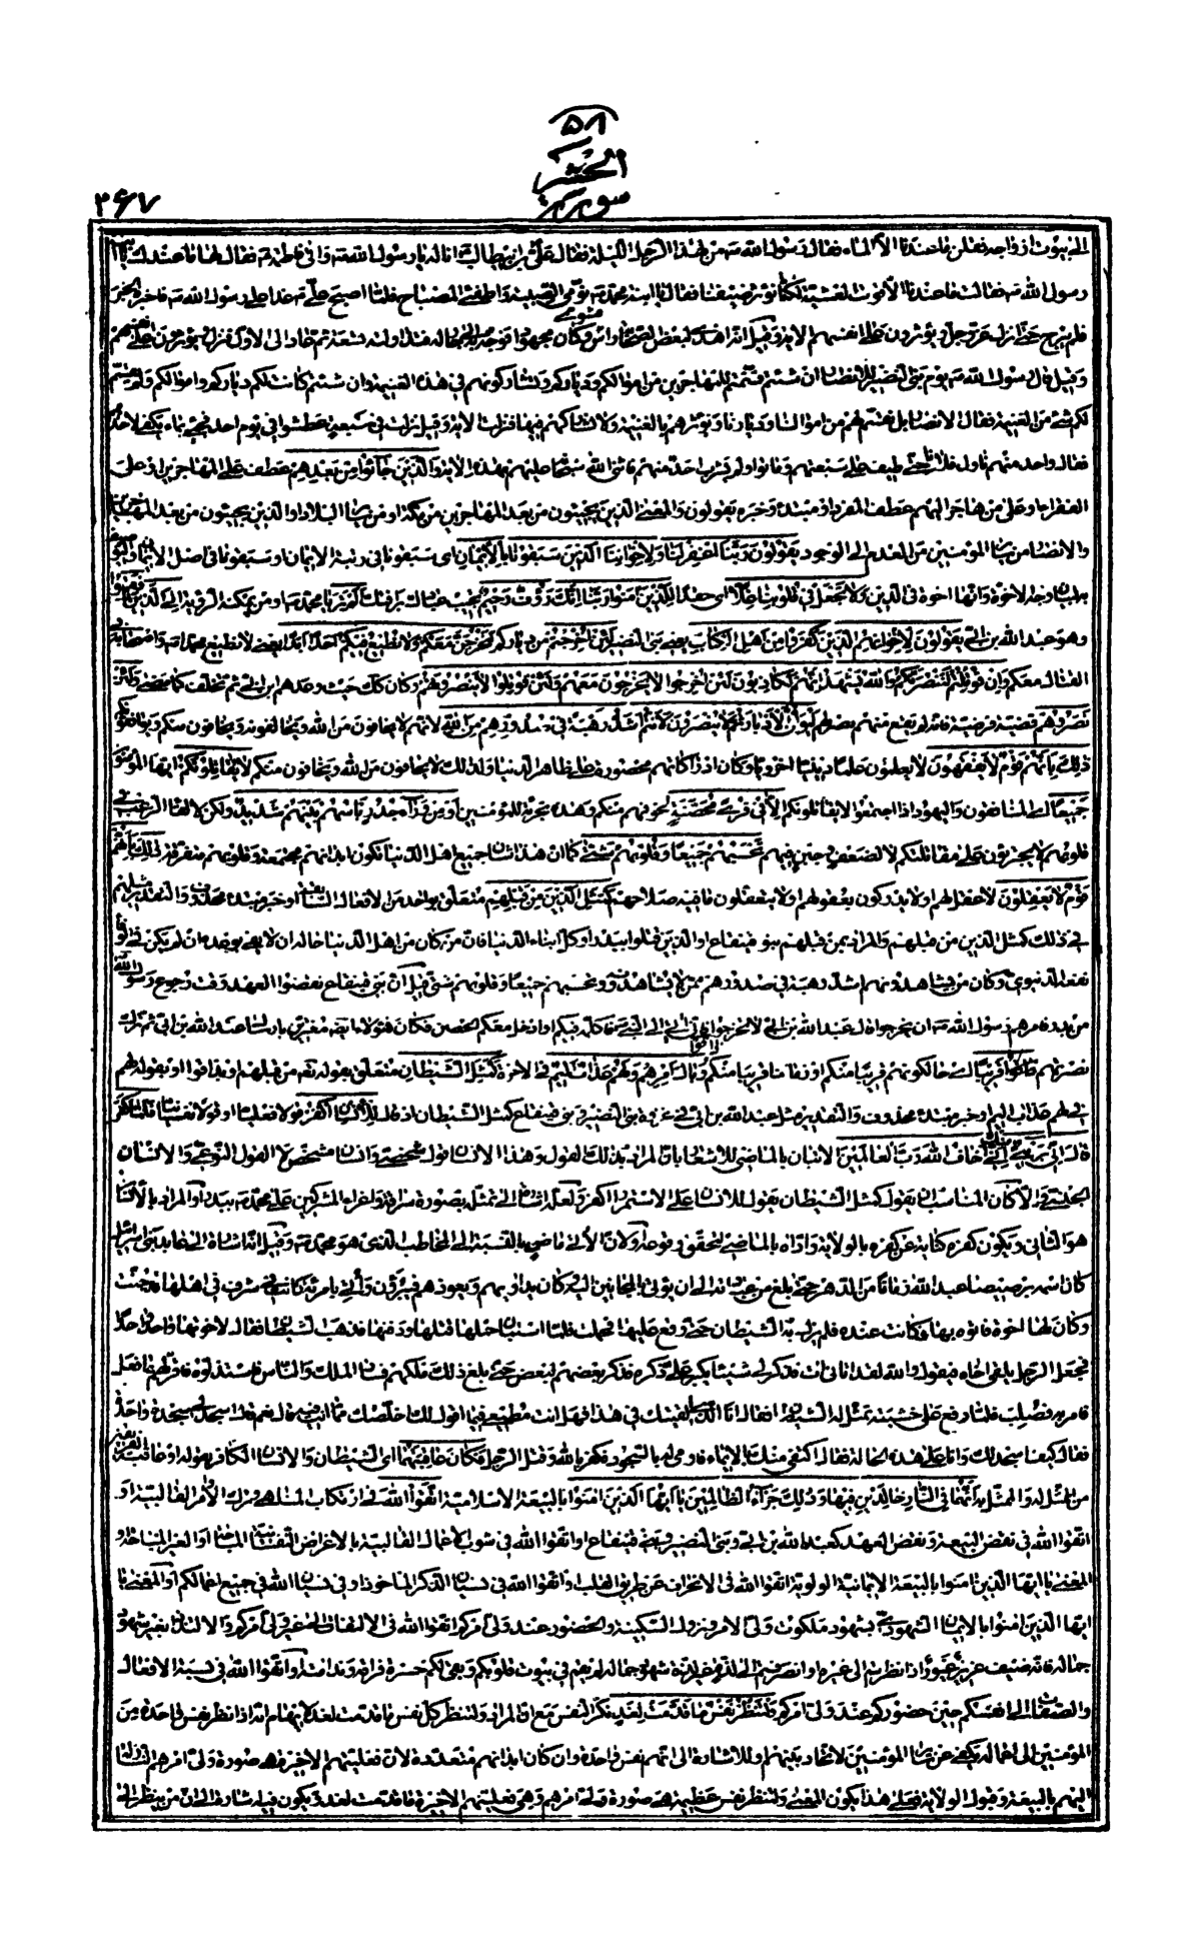 ٥٨
الحشر
سورة
٢٤٧
الى بيوت ازواجه فقلن ما عندنا الا الماء فقال رسول الله ص من لهذا الرجل الليلة فقال علي بن ابيطالب انا له يا رسول الله ص واتى فاطمة فقال لها ما عندك يا ابنة
رسول الله ص فقالت ما عندنا الا قوت العشية لكنا نؤثر ضيفنا فقال يا ابنة محمد ص نومي الصبية واطفئي المصباح فلما اصبح علي غدا على رسول الله ص فاخبره الخبر
فلم يبرح حتى انزل عز وجل ويؤثرون على انفسهم الاية وقيل انه اهدى لبعض الصحابة رأس مشوي وكان مجهودا فوجه به الى جار له فتداولته تسعة ثم عاد الى الاول فنزل ويؤثرون على انفسهم
وقيل قال رسول الله ص يوم بني النضير للانصار ان شئتم قسمتم للمهاجرين من اموالكم ودياركم وتشاركونهم في هذه الغنيمة وان شئتم كانت لكم دياركم واموالكم ولم يقسم
لكم شيء من الغنيمة فقال الانصار بل نقسم لهم من اموالنا وديارنا ونؤثرهم بالغنيمة ولا نشاركهم فيها فنزلت الاية وقيل نزلت في سبعة عطشوا في يوم احد فجيء بماء يكفي لاحدهم
فقال واحد منهم ناول فلانا حتى طيف على سبعتهم وماتوا ولم يشرب احد منهم فاثنى الله سبحانه عليهم بهذه الاية والذين جاؤا من بعدهم عطف على المهاجرين او على
الفقراء او على من هاجر اليهم عطف المفرد او مبتدء وخبره يقولون والمعنى الذين يجيئون من بعد المهاجرين من مكة او من سائر البلاد او الذين يجيئون من بعد المهاجرين
والانصار من سائر المؤمنين من العدم الى الوجود يقولون ربنا اغفر لنا ولاخواننا الذين سبقونا بالايمان اى سبقونا في رتبة الايمان او سبقونا في اصل الايمان
وجه الاخوة وانها اخوة في الدين ولا تجعل في قلوبنا غلا اى حقدا للذين امنوا ربنا انك رؤف رحيم
وهو عبد الله بن ابي يقولون لاخوانهم الذين كفروا من اهل الكتاب يعني بني النضير لئن اخرجتم من دياركم لنخرجن معكم ولا نطيع فيكم احدا ابدا يعني لا نطيع محمدا ص واصحابه في
القتال معكم وان قوتلتم لننصرنكم والله يشهد انهم لكاذبون لئن اخرجوا لا يخرجون معهم ولئن قوتلوا لا ينصرونهم وكان كذلك حيث وعدهم ابن ابي ثم تخلف كما يجيء ولئن
نصروهم قضية فرضية فانه لم يقع منهم نصر لهم ليولن الادبار ثم لا ينصرون لانتم اشد رهبة في صدورهم من الله لانهم لا يخافون من الله ويخالفونه ويخافون منكم ويوافقونكم
ذلك بانهم قوم لا يفقهون لا يعلمون علما دينيا اخرويا وكان ادراكاتهم محصورة على ظاهر الدنيا ولذلك لا يخافون من الله ويخافون منكم لا يقاتلونكم ايها المؤمنون
جميعا اى المنافقون واليهود اذا اجتمعوا لا يقاتلونكم الا في قرى محصنة لخوفهم منكم وهذه تجرئة للمؤمنين او من وراء جدر باسهم بينهم شديد ولكن لالقاء الرعب في
قلوبهم لا يجترؤن على مقاتلتكم لا لضعف وجبن فيهم تحسبهم جميعا وقلوبهم شتى كما ان هذا شان جميع اهل الدنيا تكون ابدانهم مجتمعة وقلوبهم متفرقة ذلك بانهم
قوم لا يعقلون لا عقل لهم او لا يدركون بعقولهم او لا يتعقلون ما فيه صلاحهم كمثل الذين من قبلهم متعلق بواحد من الافعال السابقة او خبر مبتدء محذوف والتقدير مثلهم
في ذلك كمثل الذين من قبلهم والمراد بمن قبلهم بنو قينقاع او الذين قتلوا ببدر او كل ابناء الدنيا فان من كان من اهل الدنيا حاله ان لا يفي بوعده ان لم يكن في الوفاء
نفعه الدنيوي وكان من يشاهدونهم اشد رهبة في صدورهم ممن لا يشاهدونه وتحسبهم جميعا وقلوبهم شتى قيل ان بني قينقاع نقضوا العهد وقت رجوع رسول الله
من بدر فامرهم رسول الله ص ان يخرجوا قال عبد الله بن ابي لا تخرجوا فاني اتي الى النبي ص فاكلمه فيكم او ادخل معكم الحصن فكان هؤلاء ايضا مغترين بارسال عبد الله بن ابي ثم ترك
نصرتهم قريبا اى حالكونهم قريبا منكم او زمانا قريبا منكم ذاقوا وبال امرهم ولهم عذاب اليم في الاخرة كمثل الشيطان متعلق بقوله تعالى من قبلهم او بذاقوا او بقوله لهم
اى لهم عذاب اليم او خبر مبتدء محذوف والتقدير مثل عبد الله بن ابي في غروره بني النضير وبني قينقاع كمثل الشيطان اذ قال للانسان اكفر قولا فعليا او قولا نفسيا فلما كفر
قال اني بريء منك اني اخاف الله رب العالمين الاتيان بالماضي للاشعار بان المراد بذلك القول وهذا الانسان قول شخصي وانسان مشخص لا القول النوعي والانسان
الجنسي والا كان المناسب ان يقول كمثل الشيطان يقول للانسان على الاستمرار اكفر ولعله اشارة الى تمثله بصورة سراقة واغراء المشركين على محمد ص ببدر او المراد بالانسان
هو الثاني ويكون كفره كناية عن كفره بالولاية واداه بالماضي لتحقق وقوعه ولان الاتي ماض بالنسبة الى المخاطب الذي هو محمد ص وقيل انه اشارة الى عابد بني اسرائيل
كان اسمه برصيصا عبد الله زمانا من الدهر حتى بلغ من عبادته الى ان يؤتى بالمجانين اليه وكان يداويهم ويعوذهم فيبرؤن وأتى بامرئة كانت في شرف في اهلها قد جنت
وكان لها اخوة فاتوه بها وكانت عنده فلم يزل به الشيطان حتى وقع عليها فحملت فلما استبان حملها قتلها ودفنها فذهب الشيطان فقال لاخوتها واحدا واحدا
فجعل الرجل يلقى اخاه فيقول والله لقد اتاني ات فذكر لي شيئا يكبر علي ذكره فذكر بعضهم لبعض حتى بلغ ذلك ملكهم فسار الملك والناس فاستنزلوه فاقر لهم بما فعل
فامر به فصلب فلما رفع على خشبته تمثل له الشيطان فقال انا الذي القيتك في هذا فهل انت مطيعي فيما اقول لك اخلصك مما انت فيه قال نعم قال اسجد لي سجدة واحدة
فقال كيف اسجد لك وانا على هذه الحالة فقال اكتفي منك بالايماء فاومى له بالسجود فكفر بالله وقتل الرجل فكان عاقبتهما اى الشيطان والانسان الكافر بقوله او عاقبة الفريقين
من الممثل له والممثل به انهما في النار خالدين فيها وذلك جزاء الظالمين يا ايها الذين امنوا بالبيعة الاسلامية اتقوا الله في ارتكاب المناهي وترك الاوامر القالبية او
اتقوا الله في نقض البيعة ونقض العهد كعبد الله بن ابي وبني النضير وبني قينقاع او اتقوا الله في شوب الاعمال القالبية بالاغراض النفسانية المباحة او الغير المباحة او
المعنى يا ايها الذين امنوا بالبيعة الايمانية الولوية اتقوا الله في الانحراف عن طريق القلب او اتقوا الله في نسيان الذكر الماخوذ او في نسيان الله في جميع اعمالكم او المعنى يا
ايها الذين امنوا بالايمان الشهودي بشهود ملكوت ولي الامر ونزول السكينة والحضور عند ولي امركم اتقوا الله في الالتفات الى غير ولي امركم والالتذاذ بغير شهود
جماله فانه ضيف عزيز غيور اذا نظرتم الى غيره او انصرفتم الى لذة غير لذة شهود جماله لم يقم في بيوت قلوبكم وبقي لكم حسرة فراقه وندامته او اتقوا الله في نسبة الافعال
والصفات الى انفسكم حين حضوركم عند ولي امركم ولتنظر نفس ما قدمت لغد نكر النفس مع ان المراد ولتنظر كل نفس ما قدمت لغد لايهام انه اذا نظر نفس واحدة من
المؤمنين الى اعماله يكفي عن سائر المؤمنين لاتحاد بينهم او للاشارة الى انهم نفس واحدة وان كان ابدانهم متعددة لان فعليتهم الاخيرة هي صورة ولي امرهم النازلة
اليهم بالبيعة وقبول الولاية فعلى هذا يكون المعنى ولتنظر نفس عظيمة هي صورة ولي امرهم وهي فعليتهم الاخيرة ما قدمت لغد ويكون فيه اشارة الى ان من ينظر الى